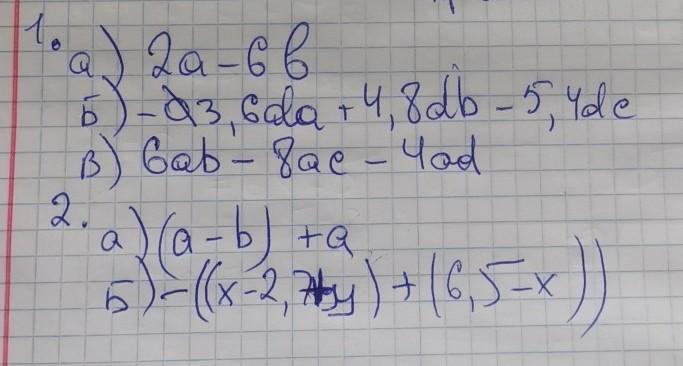 1. а) 2a - 6b
Б) - 3,6da + 4,8db - 5,4dc
В) 6ab - 8ac - 4ad
2. а) (a - b) + a
Б) - ((x - 2,7+y) + (6,5 - x))